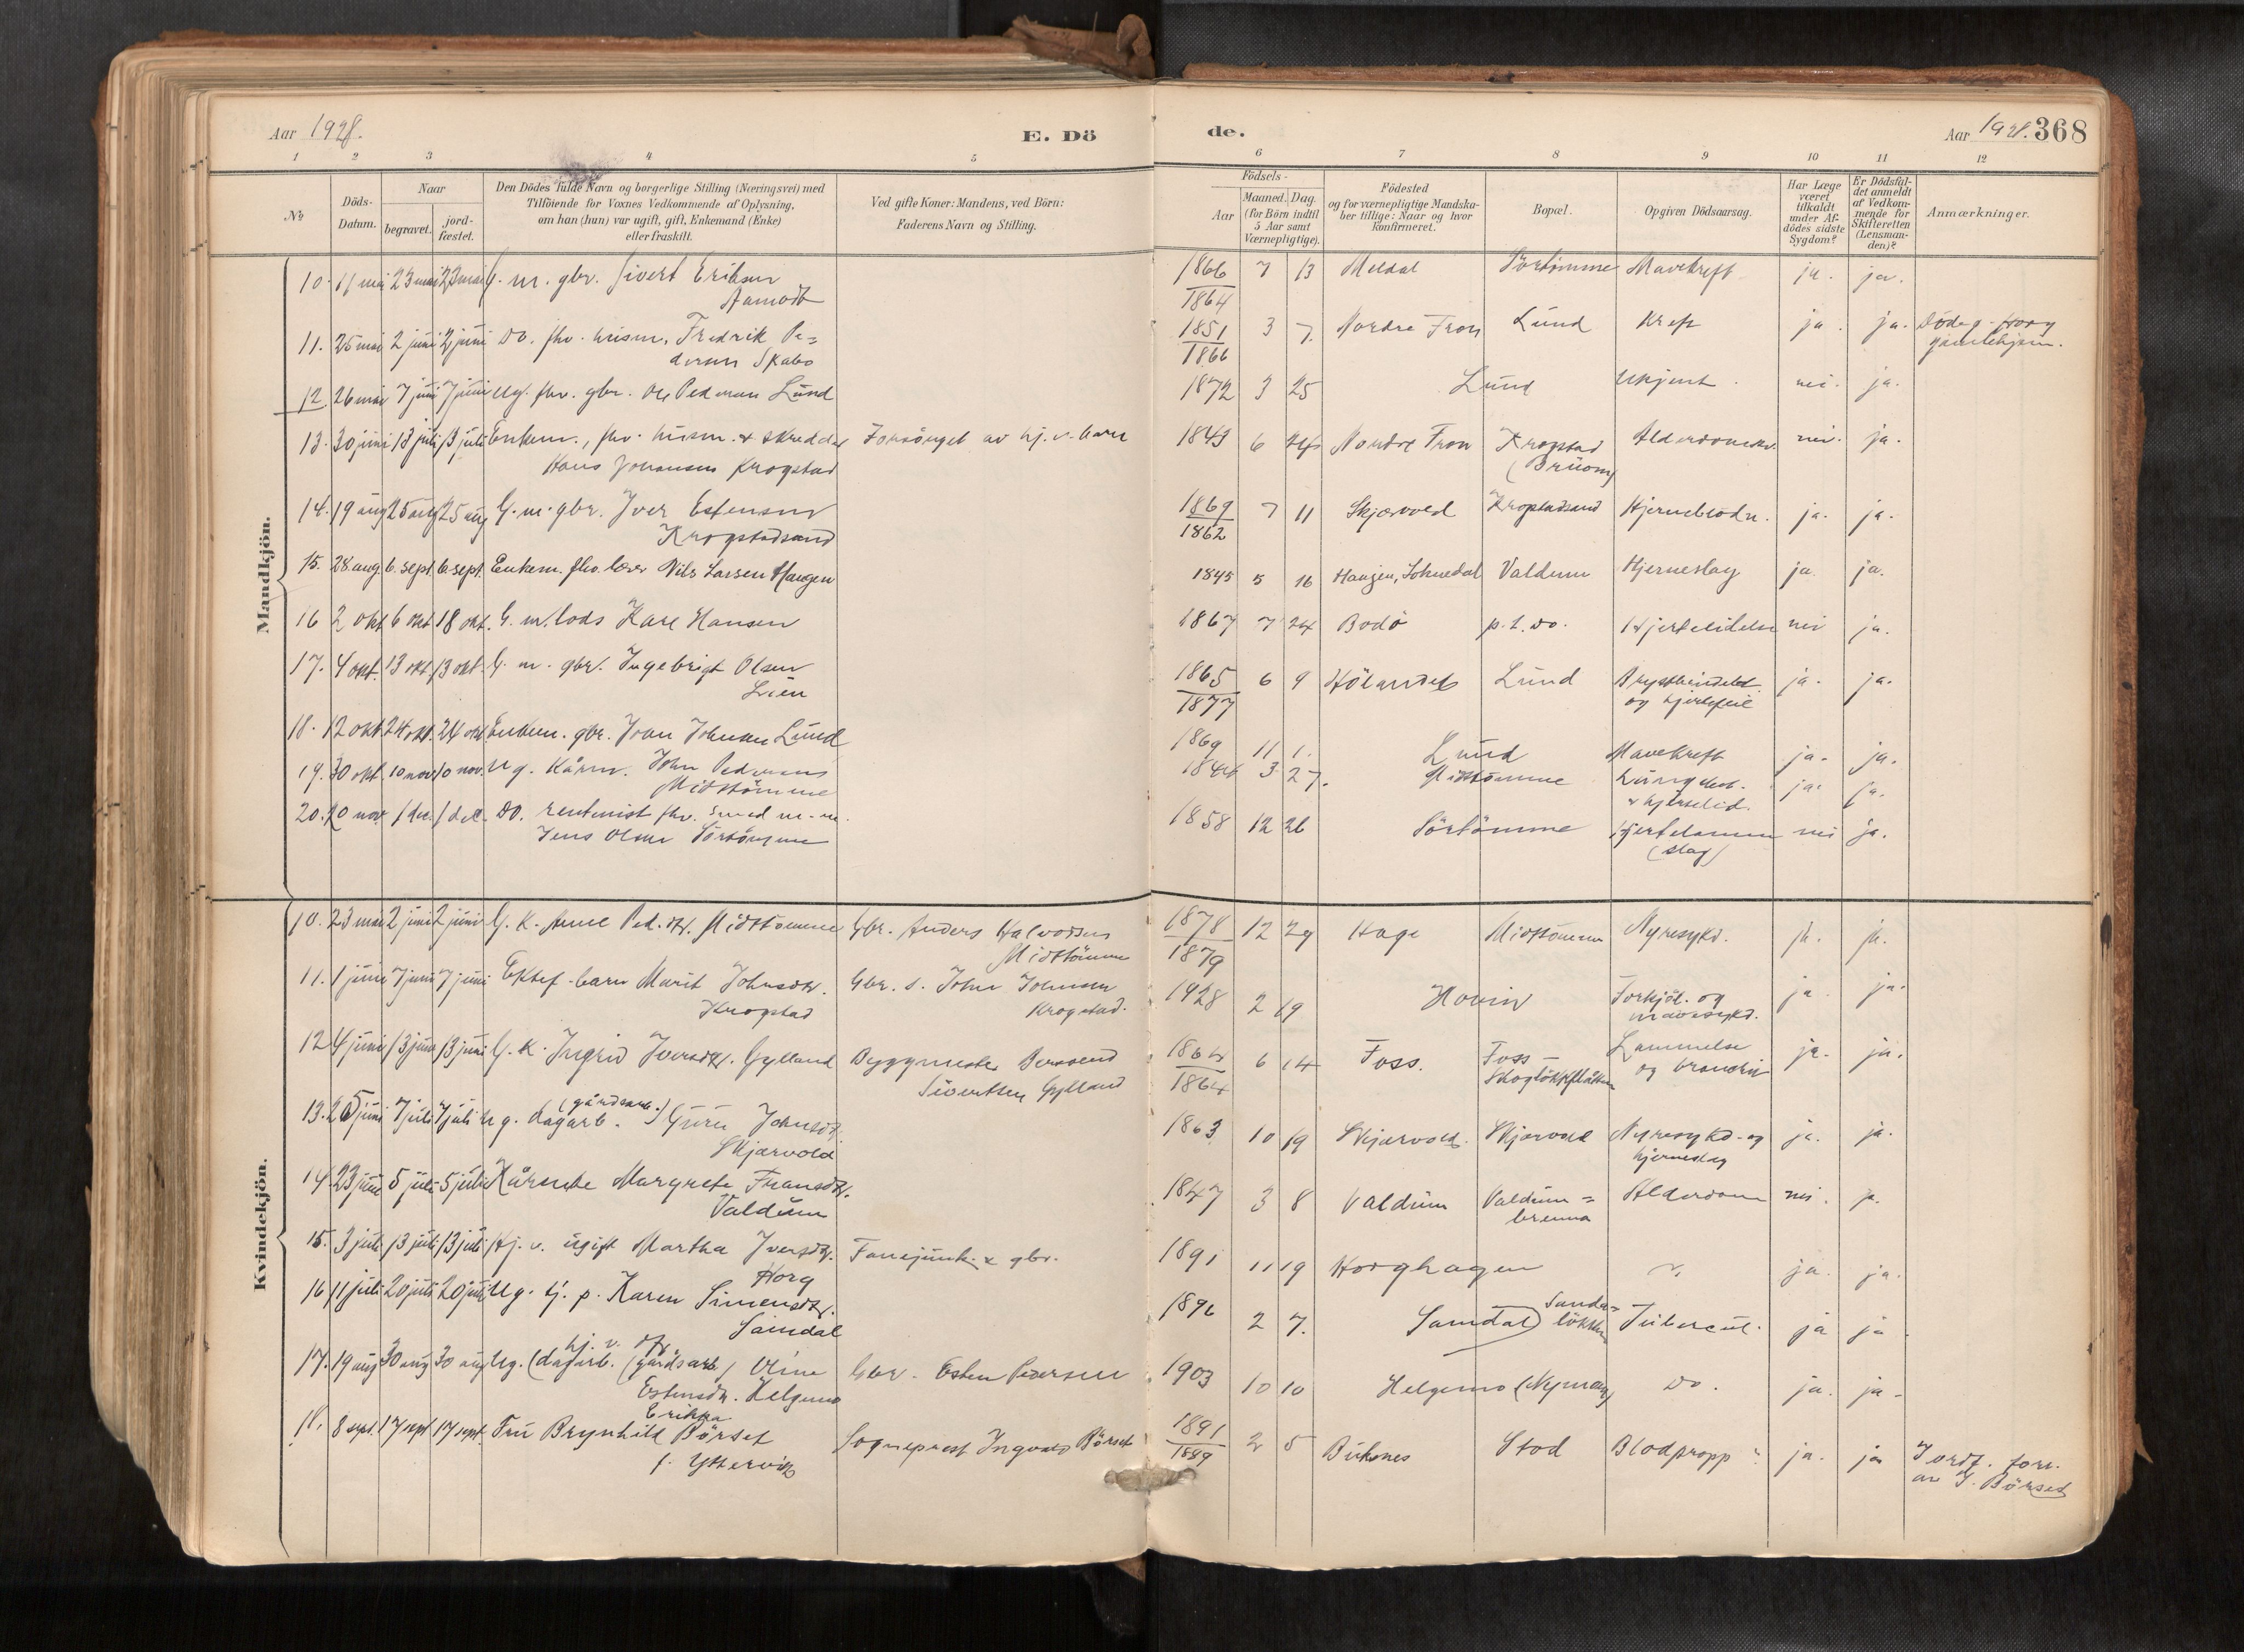 Aar 1928.
E. Dö
de.
Aar 1928. 368
1 2 3 4 5 6 7 8 9 10 11 12
No
Döds-Datum.
Naar
begravet.
jord-fæstet.
Den Dödes fulde Navn og borgerlige Stilling (Næringsvei) med
Tilföiende for Voxnes Vedkommende af Oplysning,
om han (hun) var ugift, gift, Enkemand (Enke)
eller fraskilt.
Ved gifte Koner: Mandens, ved Börn:
Faderens Navn og Stilling.
Födsels-
Aar
Maaned. Dag.
(for Börn indtil
5 Aar samt
Værnepligtige).
Födested
og for værnepligtige Mandska-
ber tillige: Naar og hvor
konfirmeret.
Bopæl.
Opgiven Dödsaarsag.
Har Læge
været
tilkaldt
under Af-
dödes sidste
Sygdom?
Er Dödsfal-
det anmeldt
af Vedkom-
mende for
Skifteretten
(Lensman-
den)?
Anmærkninger.
Mandkjön.
10. 11 mai 23 mai 23 mai G. m. gbr. Sivert Eriksen 1866 7 13 Meldal Sörtömme Mavekreft ja. ja.
Aamodt 1864
11. 25 mai 2 juni 2 juni Do. fhv. husm. Fredrik Pe= 1851 3 7. Nordre Fron Lund Kreft ja. ja. Döde g. Horg
dersen Skabo 1866 gamlehjem.
12. 26 mai 7 juni 7 juni Ug. fhv. gbr. Ole Pedersen Lund 1872 3 25 Lund Ukjent. nei. ja.
13. 30 juni 13 juli 13 juli Enkem., fhv. husm. & skredder Forsörget av hj. v. barn 1843 6 24 Nordre Fron Krogstad Alderdomssv. nei. ja.
Hans Johansen Krogstad
14. 19 aug 25 aug 25 aug G. m. gbr. Iver Estensen 1869 7 11 Skjærvold Krogstadsand Hjerneblödn. ja. ja.
Krogstadsand 1862
15. 28 aug. 6. sept. 6. sept. Enkem. fhv. lærer Nils Larsen Haugen 1845 5 16 Haugen, Soknedal Valdum Hjerneslag ja. ja.
16 2 okt 6 okt 18 okt. G. m. lods Karl Hansen 1867 7 24 Bodö p.t. do. Hjertelidelse nei ja.
17. 4 okt. 13 okt. 13 okt. G. m. gbr. Ingebrigt Olsen 1865 6 9 Hölandet Lund ja. ja.
Lien 1877 og hjertefeil
18. 12 okt 24 okt. 24 okt Enkem. gbr. Joan Johnsen Lund 1869 11 1. Lund Mavekreft ja. ja.
19. 30 okt. 10 nov. 10 nov. Ug. Kårm. John Pedersen 1844 3 27. Midttömme ja. ja.
Midttömme & hjertelid.
20. 20 nov 1 dec. 1 dec. Do. rentenist fhv. smed m.m. 1858 12 26 Sörtömme Hjertelammelse nei ja.
Jens Olsen Sörtömme (slag)
Kvindekjön.
10. 23 mai 2 juni 2 juni G. K. Anne Ped.dtr. Midttömme Gbr. Anders Halvorsen 1878 12 29 Hage Midttömme Nyresykd. ja. ja.
Midttömme 1879
11. 1 juni 7 juni 7 juni Ektef. barn Marit Johnsdtr. Gbr. s. John Johnsen 1928 2 19 Hovin Forkjöl. og ja. ja.
Krogstad Krogstad. mavesykd.
12 4 juni 13 juni 13 juni G. K. Ingrid Iversdtr. Gylland Byggmester Berntsend 1864 6 14 Foss. Foss- Lammelse ja. ja.
Sivertsen Gylland 1864 og
13. 26 juni 7 juli 7 juli Ug. dagarb. (gårdsarb.) Guru Johnsdtr. 1863 10 19 Skjærvold. Skjærvold Nyresykd. og ja. ja.
Skjærvold hjerneslag
14. 23 juni 5 juli 5 juli Kårenke Margrete Fransdtr. 1847 3 8 Valdum Valdum= Alderdom nei. ja.
Valdum brenna
15. 3 juli 13 juli 13 juli Hj. v. ugift Martha Iversdtr. Fanejunk. & gbr. 1891 11 19 Horghagen ja. ja.
Horg
16 11 juli 20 juli 20 juli Ug. tj. p. Karen Simensdtr. 1896 2 7. Samdal Tubercul. ja ja
Samdal
17. 19 aug 30 aug 30 aug Ug. (dagarb. (gårdsarb) hj. v. Oline Gbr. Esten Pedersen 1903 10 10 Helgemo (Nymoen) do. ja. ja.
Estensdtr. Helgemo
18. 8 sept. 17 sept 17 sept. Fru Brynhild Erikka Börset Sogneprest Ingvald Börset 1891 2 5 Buksnes Stod Blodpropp ja. ja Jordf. forr.
f. Yttervik 1889 av I. Börset